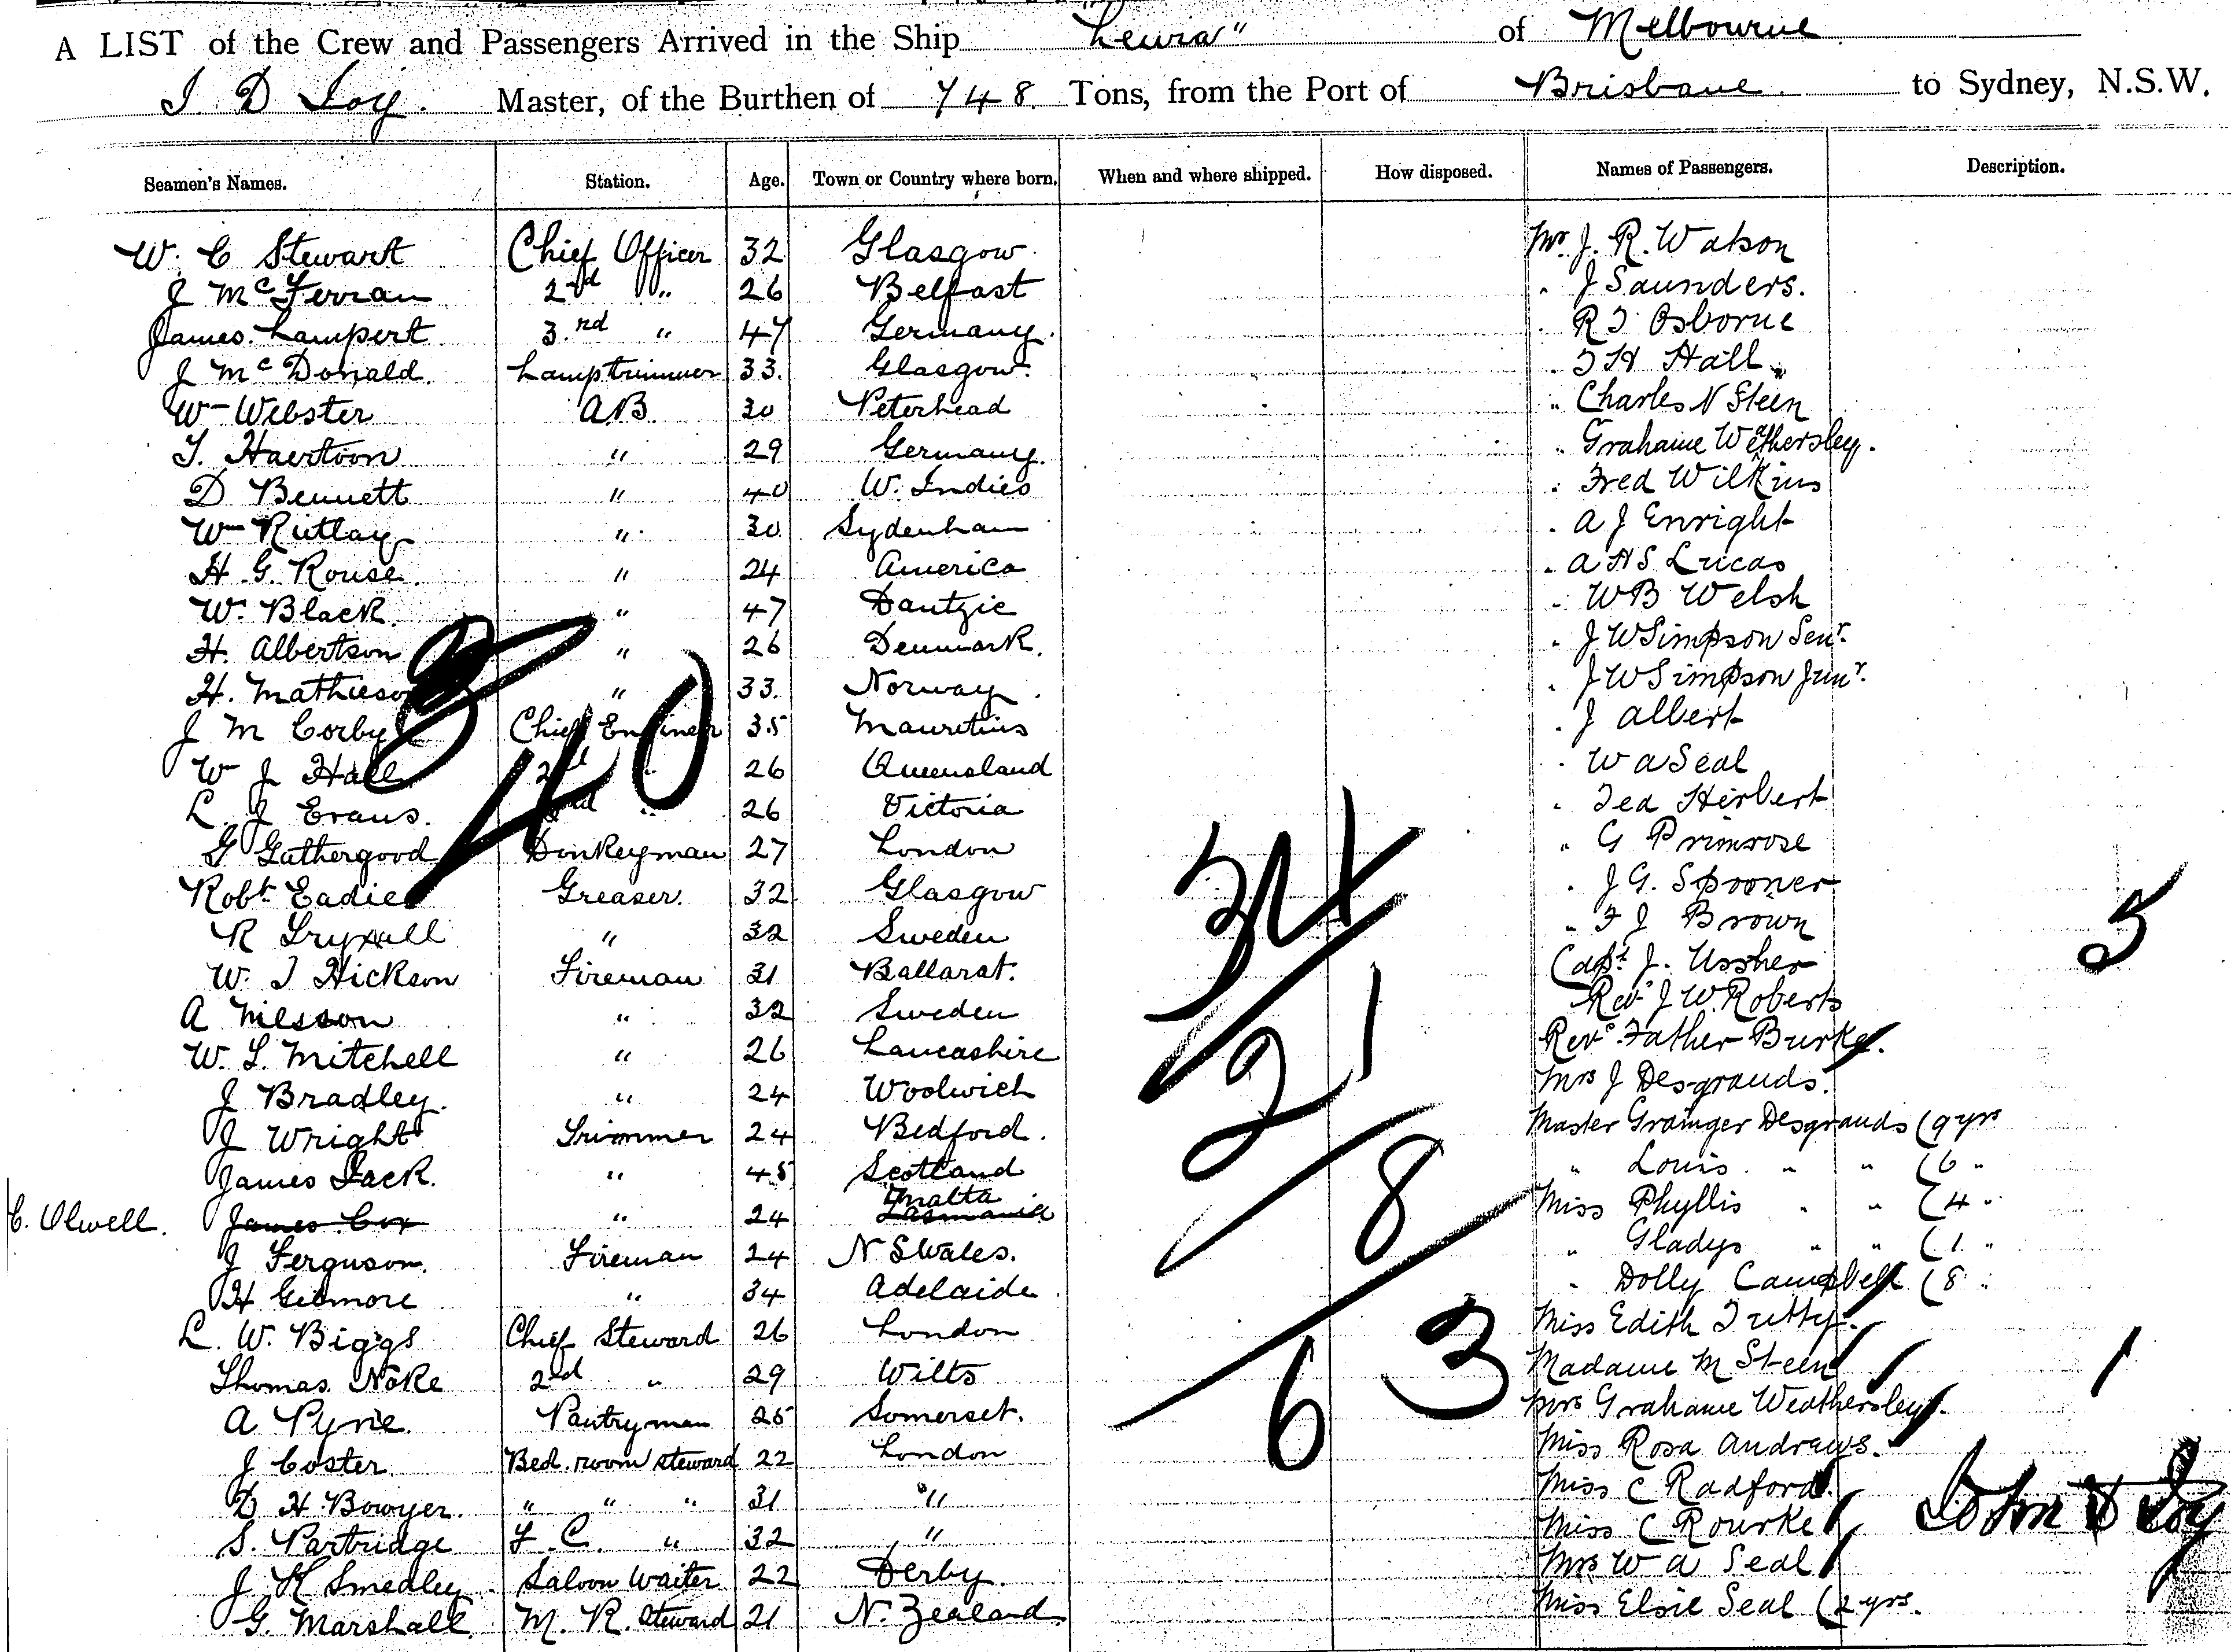 A LIST of the Crew and Passengers Arrived in the Ship "Lewia" of Melbourne
J D Joy. Master, of the Burthen of 748 Tons, from the Port of Brisbane to Sydney, N.S.W.
Seamen's Names. Station. Age. Town or Country where born. When and where shipped. How disposed. Names of Passengers. Description.
W. C Stewart Chief Officer 32 Glasgow Mr. J. R. Watson
J McFerran 2nd " 26 Belfast " J Saunders.
James Lampert 3rd " 47 Germany. " R T Osborne
J McDonald. Lamptrimmer 33. Glasgow. " T H Hall
Wm Webster A.B. 30 Peterhead " Charles N Steen
T. Haertoon " 29 Germany. " Grahame Weathersley.
D Bennett " 40 W. Indies " Fred Wilkins
Wm Rutlay " 30 Sydenham " A J Enright
H. G. Rouse. " 24 America " A H S Lucas
W. Black. " 47 Dantzic " W B Welsh
H. Albertson " 26 Denmark. " J W Simpson Senr.
H. Mathieson " 33. Norway. " J W Simpson Junr.
J M Corby Chief Engineer 35 Mauretius " J Albert
W J Hall 2nd " 26 Queensland " W A Seal
L. J Evans. 3rd " 26 Victoria " Ted Herbert
G Gathergood Donkeyman 27 London " G Primrose
Robt Eadie Greaser. 32 Glasgow " J. G. Spooner
R " 32 Sweden " F J Brown
W. T Hickson Fireman 31 Ballarat. Capt. J. Ussher
A Nilsson " 32 Sweden Rev. J W. Roberts
W. L. Mitchell " 26 Lancashire Revd. Father Burke.
J Bradley. " 24 Woolwich Mrs J Desgrands.
J Wright Trimmer 24 Bedford. Master Grainger Desgrands (9 yrs
James Jack. " 45 Scotland " Louis " " (6 "
C. Olwell. James Cox " 24 Malta Tasmania Miss Phyllis " " (4 "
J Ferguson. Fireman 24 N S Wales. " Gladys " " (1 "
H Gilmore " 34 Adelaide. " Dolly Campbell (8 "
L. W. Biggs Chief Steward 26 London Miss Edith Tutty.
Thomas Noke 2nd " 29 Wilts Madame M Steen
A Pyne. Pantryman 25 Somerset. Mrs Grahame Weathersley.
J Coster Bed. room steward 22 London Miss Rosa Andrews.
D H. Bowyer. " " " 31 " Miss C Radford.
S. Partridge F. C. " 32 " Miss C Rourke
J K Smedley Saloon Waiter 22 Derby. Mrs W A Seal
G. Marshall M. R. Steward 21 N. Zealand. Miss Elsie Seal (2 yrs.
40
34
21
8
6
3
5
1
John D Joy